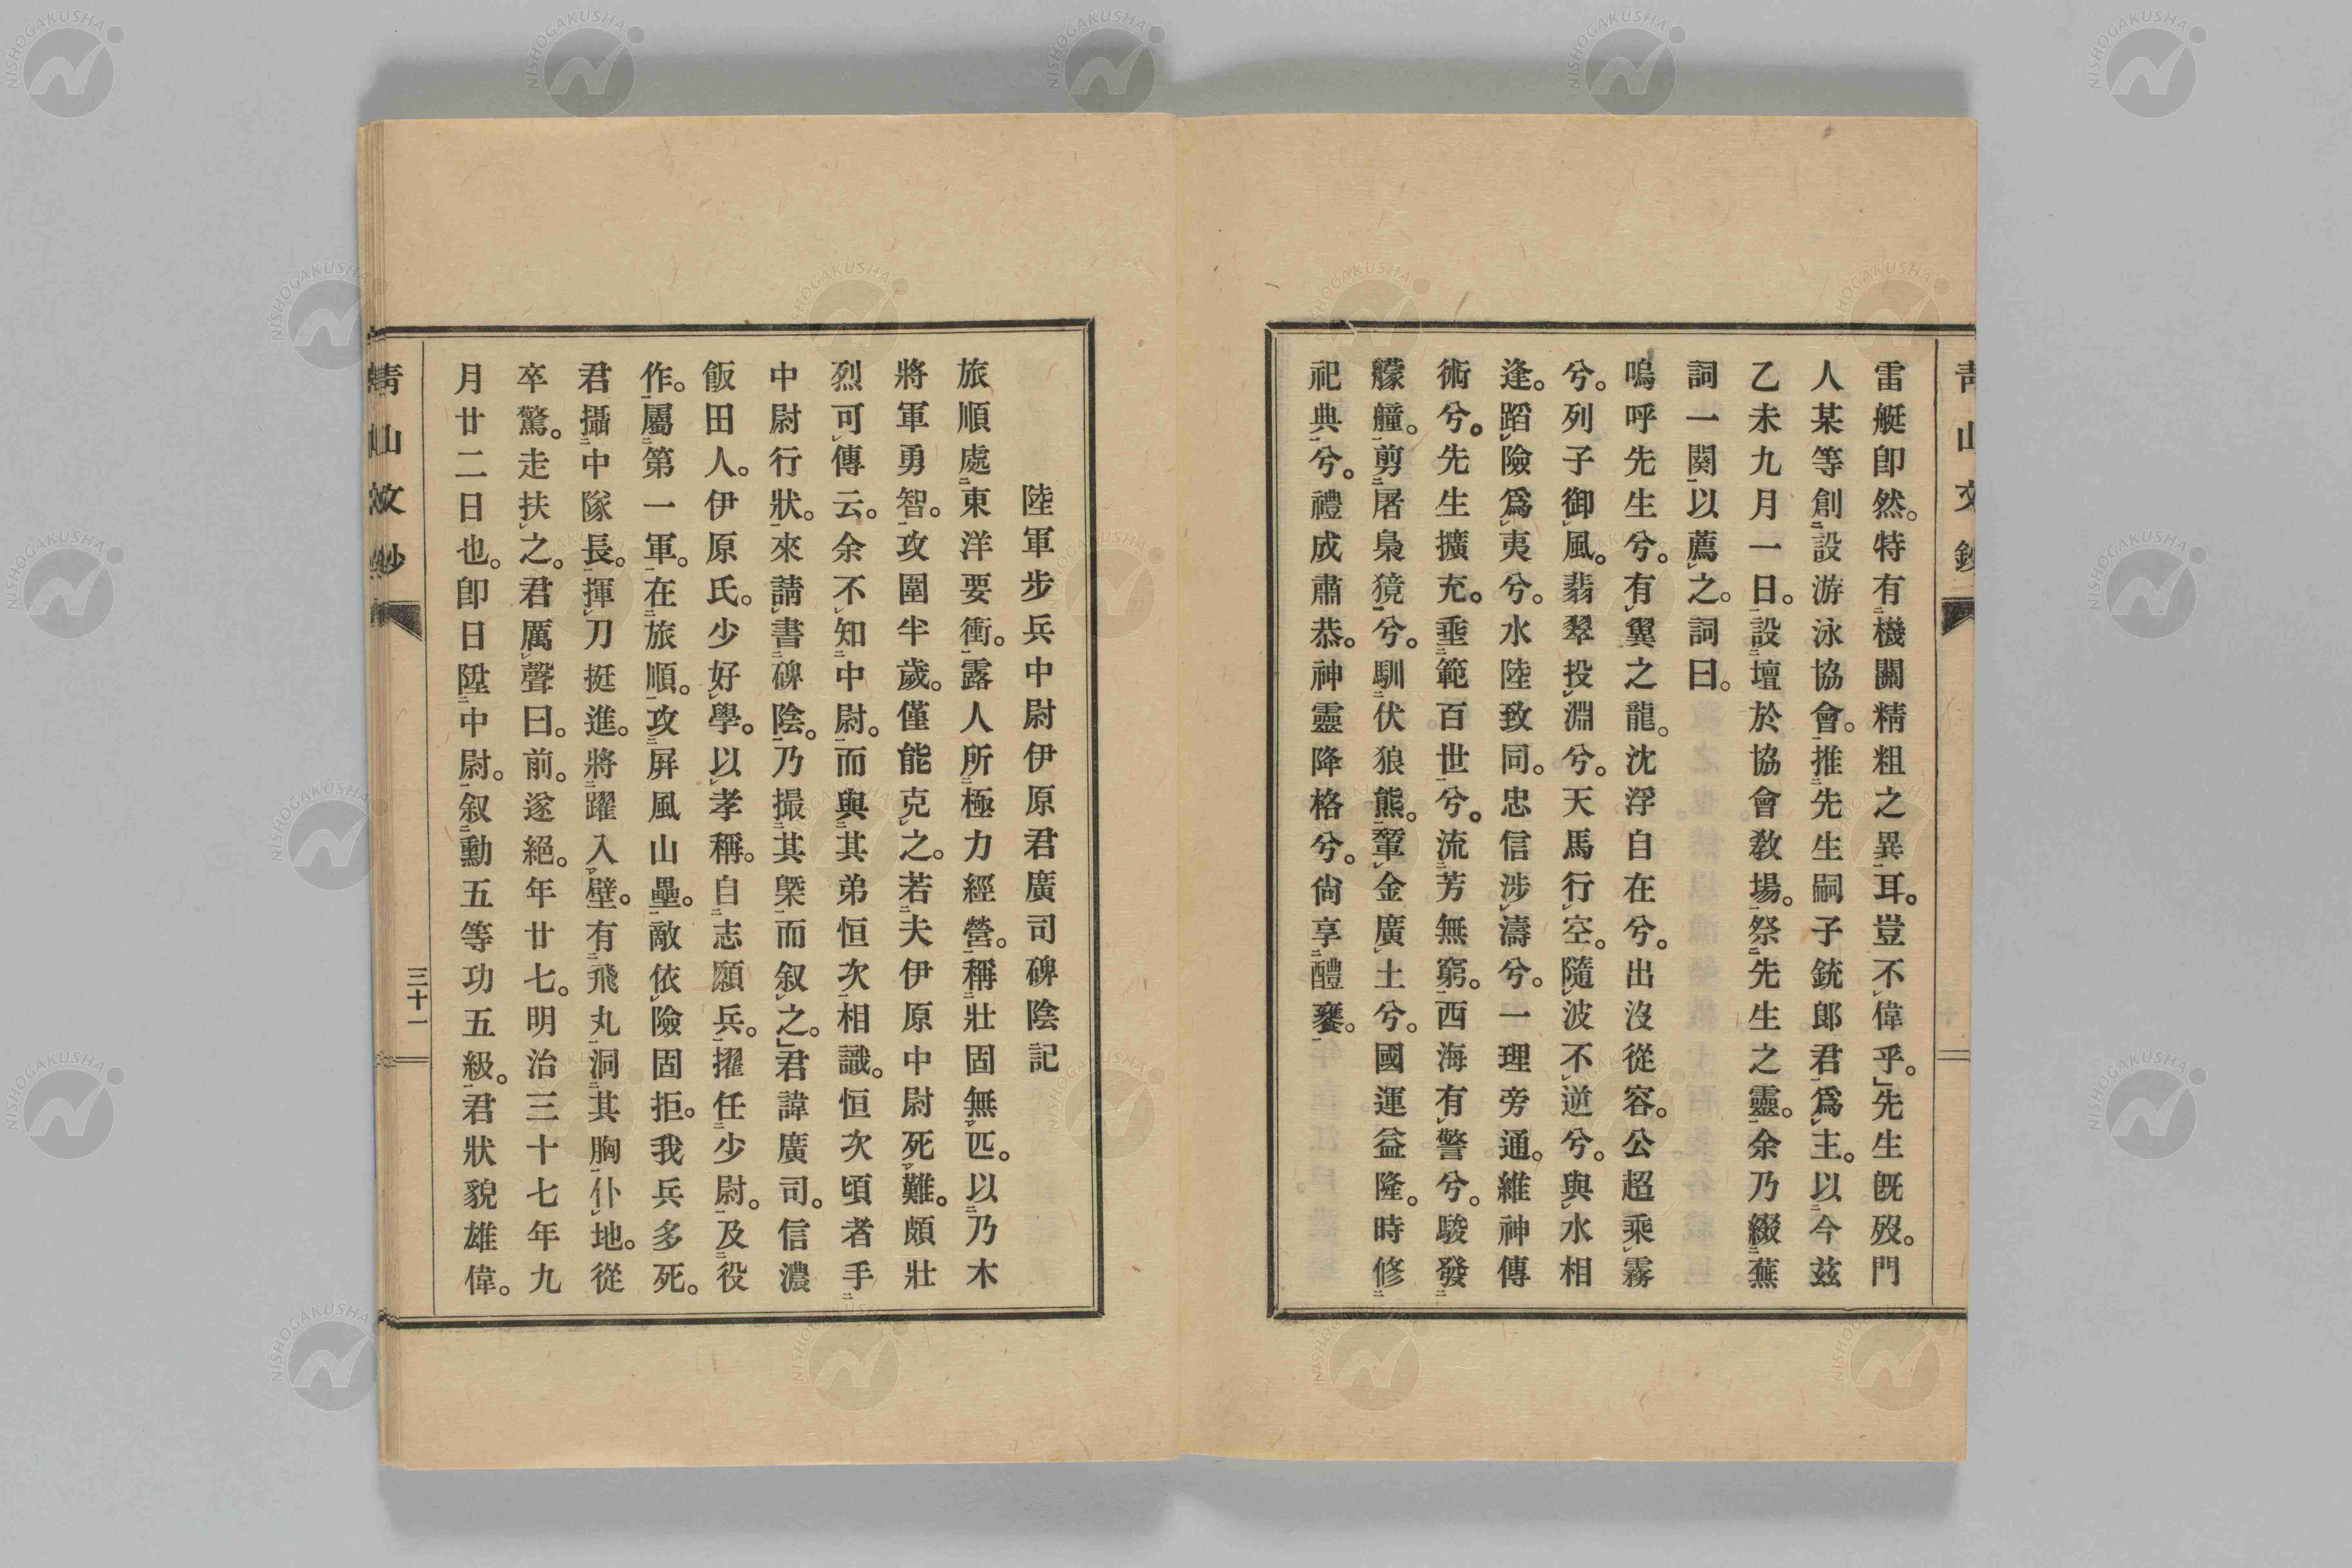 雷艇卽然。特有機關精粗之異耳。豈不偉乎。」先生既歿。門
人某等創設游泳協會。推先生嗣子銃郎君爲主。以今茲
乙未九月一日。設壇於協會敎場。祭先生之靈。余乃綴蕪
詞一闋以薦之。詞曰。
嗚呼先生兮。有翼之龍。沈浮自在兮。出沒從容。公超乘霧
兮。列子御風。翡翠投淵兮。天馬行空。隨波不逆兮。與水相
逢。蹈險爲夷兮。水陸致同。忠信涉濤兮。一理旁通。維神傳
術兮。先生擴充。垂範百世兮。流芳無窮。西海有警兮。駿發
艨艟。剪屠梟獍兮。馴伏狼熊。鞏金廣土兮。國運益隆。時修
祀典兮。禮成肅恭。神靈降格兮。尙享醴饔。
陸軍步兵中尉伊原君廣司碑陰記
旅順處東洋要衝。露人所極力經營。稱壯固無匹。以乃木
將軍勇智。攻圍半歲。僅能克之。若夫伊原中尉死難。頗壯
烈可傳云。余不知中尉。而與其弟恒次相識。恒次頃者手
中尉行狀。來請書碑陰。乃撮其槩而叙之。」君諱廣司。信濃
飯田人。伊原氏。少好學。以孝稱。自志願兵。擢任少尉。及役
作。屬第一軍。在旅順。攻屛風山壘。敵依險固拒。我兵多死。
君攝中隊長。揮刀挺進。將躍入壁。有飛丸洞其胸仆地。從
卒驚。走扶之。君厲聲曰。前。遂絕。年廿七。明治三十七年九
月廿二日也。卽日陞中尉。叙勳五等功五級。君狀貌雄偉。
靑山文鈔
三十一